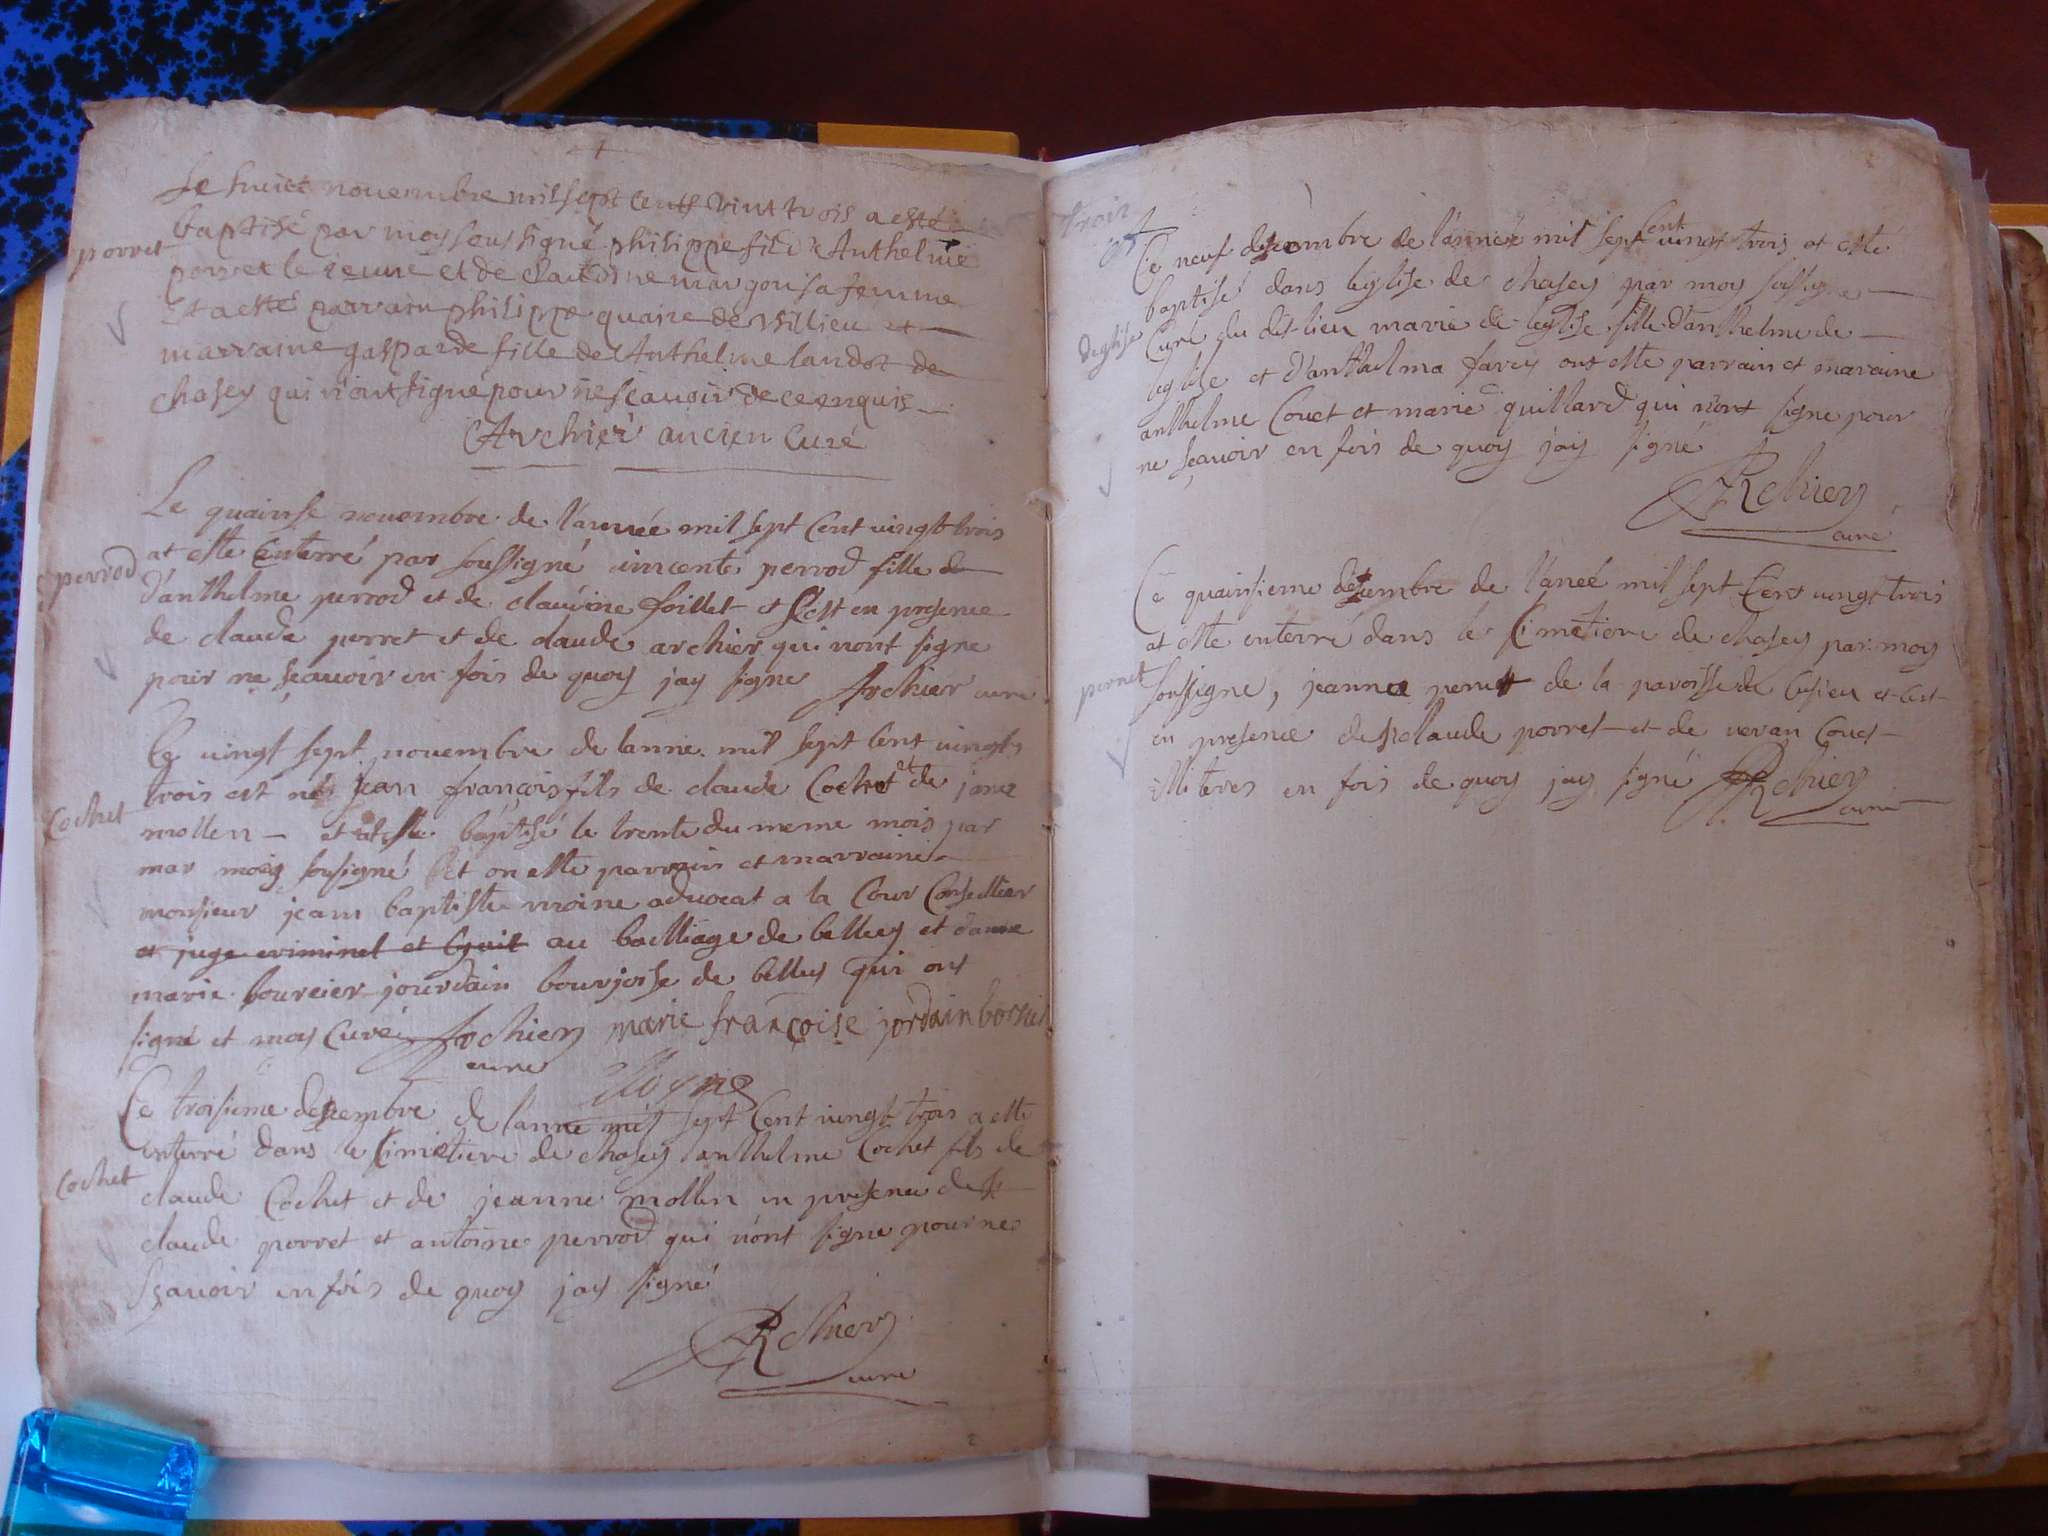 Le huict novembre mil sept cents vint trois a esté
baptisé par moy soussigné philippe fils d'Anthelme
porret
porret le jeune et de Claudine mangon sa femme
Et a esté parrain philippe quaire de Millieu et
marraine gasparde fille de Anthelme landot de
chasey qui n'ont signé pour ne sçavoir de ce enquis
Archier ancien Curé
Le quainse nouembre de l'année mil sept Cent uingt trois
at este Enterré par soussigné uincente perrod fille de
perrod
d'anthelme perrod et de claudine foillet et c'est en presence
de claude porret et de claude archier qui n'ont signe
pour ne sçauoir en fois de quoy jay signe Archier curé
Ce uingt sept nouembre de lanne mil sept Cent uingts
trois est nés jean françois fils de claude Cochet et de jane
Cochet
mollen et at este baptisé le trente du meme mois par
mar moy sousigné Et on este parrain et marraine
monsieur jean baptiste moine aduocat a la Cour Conseillier
et juge criminel et Ciuil au bailliage de belley et dame
marie bourcier jourdain bourjoise de belley qui ont
signé et moy Curé Archier marie françoise jordain borsié
curé
Moyne
Ce troisieme desembre de lanne mil sept Cent uingt trois a este
enterré dans le Cimetiere de chasey anthelme Cochet fils de
Cochet
claude Cochet et de jeanne mollen en presence de
claude porret et antoine perrod qui n'ont signe pour ne
sçauoir en fois de quoy jay signé
ARchier
curé
trois
Ce neuf desembre de l'anneé mil sept Cent uingt trois at esté
baptisé dans leglise de chasey par moy sousigne
deglise
Curé du dit lieu marie de leglise fille d'anthelme de
leglise et d'anthelma farcy ont este parrain et maraine
anthelme Couet et marie quillard qui n'ont signe pour
ne sçauoir en fois de quoy jay signé
ARchier
curé
Ce quainsieme desembre de l'aneé mil sept Cent uingt trois
at este enterré dans le Cimetiere de chasey par moy
pernet
soussigne, jeanne pernet de la paroisse de Cusieu et c'est
en presence de Claude porret et de veran Couet
illiteres en fois de quoy jay signé ARchier
curé